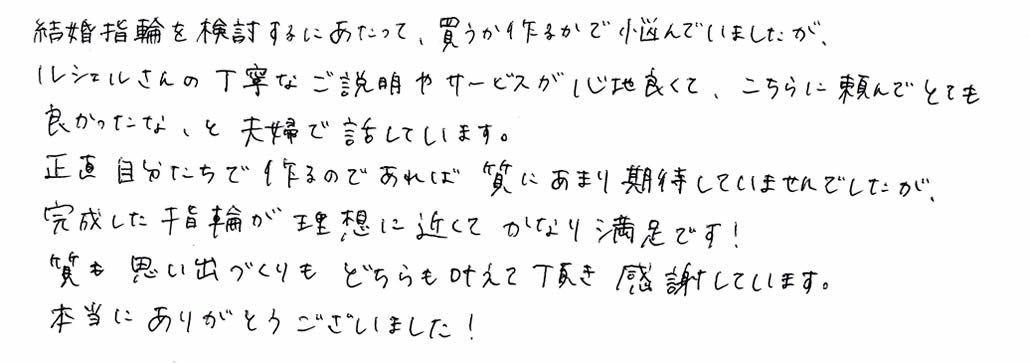 結婚指輪を検討するにあたって、買うか作るかで悩んでいましたが、
ルシエルさんの丁寧なご説明やサービスが心地良くて、こちらに頼んでとても
良かったな、と夫婦で話しています。
正直自分たちで作るのであれば質にあまり期待していませんでしたが、
完成した指輪が理想に近くてかなり満足です！
質も思い出づくりもどちらも叶えて頂き感謝しています。
本当にありがとうございました！